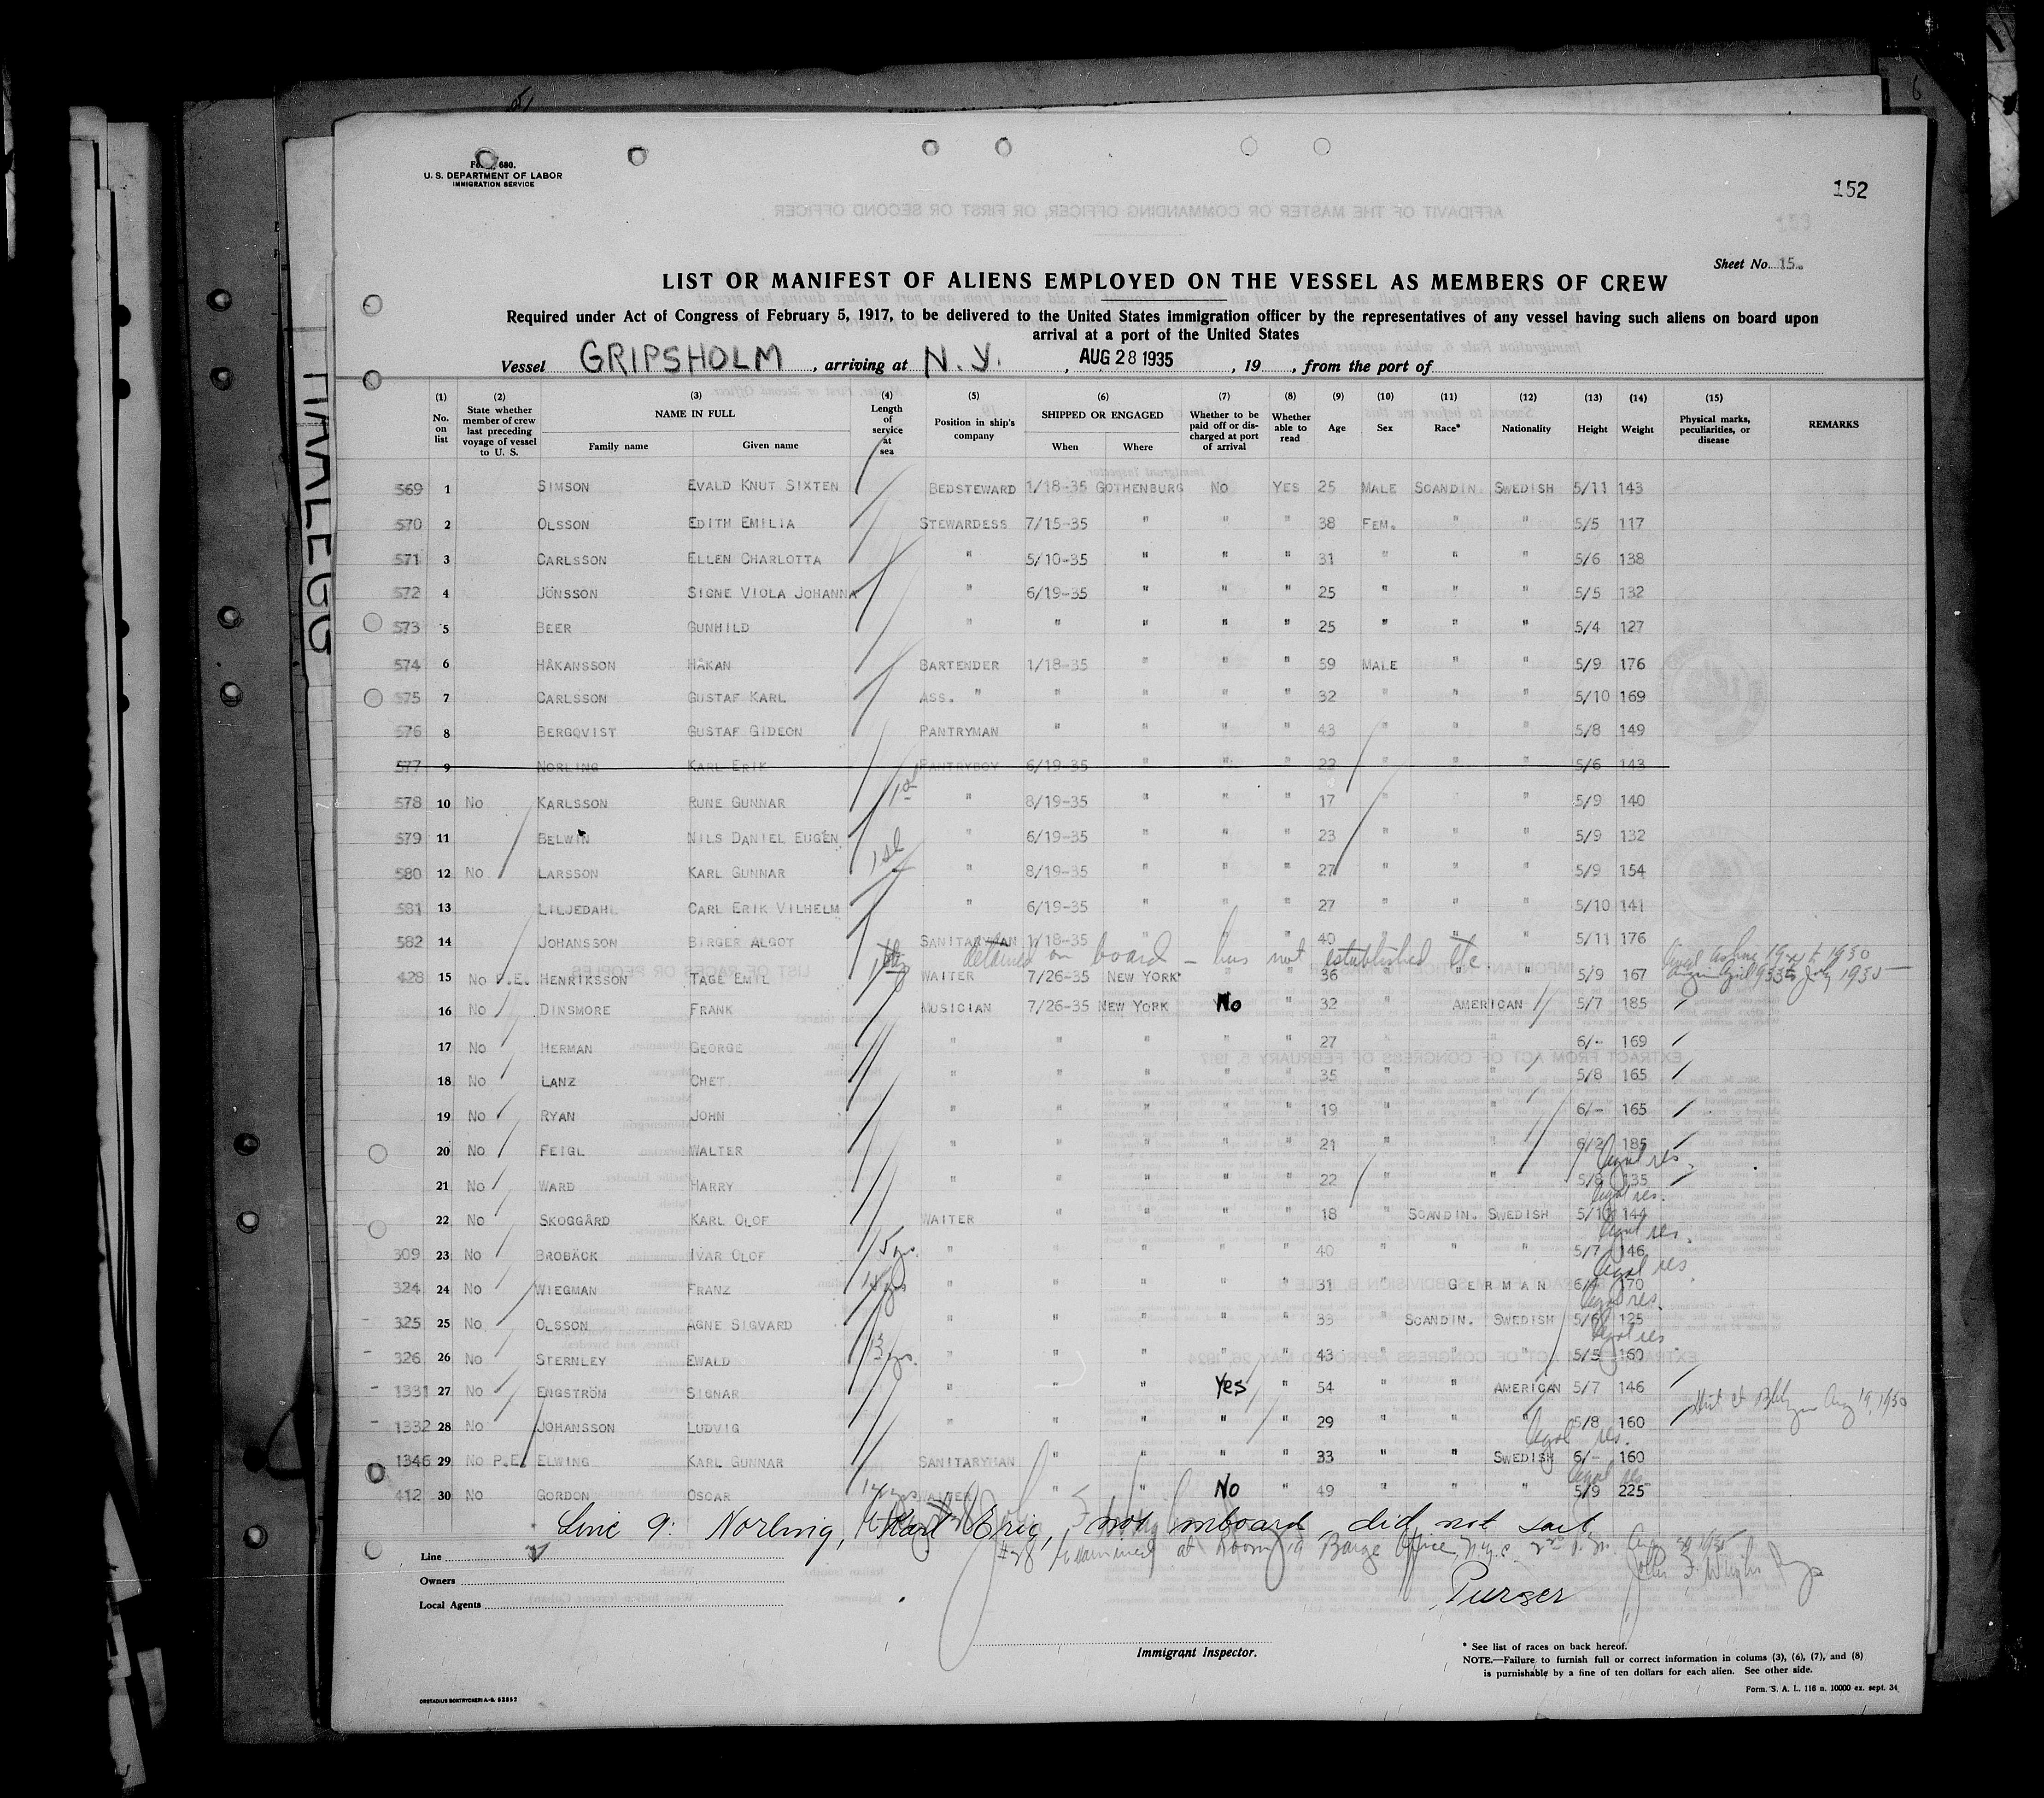 Form 680.
U. S. DEPARTMENT OF LABOR
IMMIGRATION SERVICE
152
Sheet No. 15.
LIST OR MANIFEST OF ALIENS EMPLOYED ON THE VESSEL AS MEMBERS OF CREW
Required under Act of Congress of February 5, 1917, to be delivered to the United States immigration officer by the representatives of any vessel having such aliens on board upon
arrival at a port of the United States
Vessel GRIPSHOLM, arriving at N.Y., AUG 28 1935, 19, from the port of
(1) No. on list (2) State whether member of crew last preceding voyage of vessel to U. S. (3) NAME IN FULL Family name Given name (4) Length of service at sea (5) Position in ship's company (6) SHIPPED OR ENGAGED When Where (7) Whether to be paid off or discharged at port of arrival (8) Whether able to read (9) Age (10) Sex (11) Race* (12) Nationality (13) Height (14) Weight (15) Physical marks, peculiarities, or disease REMARKS
569 1 SIMSON EVALD KNUT SIXTEN BEDSTEWARD 1/18-35 GOTHENBURG NO YES 25 MALE SCANDIN. SWEDISH 5/11 143
570 2 OLSSON EDITH EMILIA STEWARDESS 7/15-35 " " " 38 FEM. " " 5/5 117
571 3 CARLSSON ELLEN CHARLOTTA " 5/10-35 " " " 31 " " " 5/6 138
572 4 JÖNSSON SIGNE VIOLA JOHANNA " 6/19-35 " " " 25 " " " 5/5 132
573 5 BEER GUNHILD " " " " " 25 " " " 5/4 127
574 6 HÅKANSSON HÅKAN BARTENDER 1/18-35 " " " 59 MALE " " 5/9 176
575 7 CARLSSON GUSTAF KARL ASS. " " " " " 32 " " " 5/10 169
576 8 BERGQVIST GUSTAF GIDEON PANTRYMAN " " " " 43 " " " 5/8 149
577 9 NORLING KARL ERIK PANTRYBOY 6/19-35 " " " 22 " " " 5/6 143
578 10 NO KARLSSON RUNE GUNNAR 1st " 8/19-35 " " " 17 " " " 5/9 140
579 11 BELWIN NILS DANIEL EUGÉN " 6/19-35 " " " 23 " " " 5/9 132
580 12 NO LARSSON KARL GUNNAR 1st " 8/19-35 " " " 27 " " " 5/9 154
581 13 LILJEDAHL CARL ERIK VILHELM " 6/19-35 " " " 27 " " " 5/10 141
582 14 JOHANSSON BIRGER ALGOT SANITARYMAN 1/18-35 " " " 40 " " " 5/11 176
detained on board - has not established etc
428 15 NO P.E. HENRIKSSON TAGE EMIL WAITER 7/26-35 NEW YORK " " 36 " " " 5/9 167
16 NO DINSMORE FRANK MUSICIAN 7/26-35 NEW YORK No " 32 " AMERICAN 5/7 185
17 NO HERMAN GEORGE " " " " " 27 " " 6/- 169
18 NO LANZ CHET " " " " " 35 " " 5/8 165
19 NO RYAN JOHN " " " " " 19 " " 6/- 165
20 NO FEIGL WALTER " " " " " 21 " " 6/2 185
legal res.
21 NO WARD HARRY " " " " " 22 " " 5/8 135
legal res.
22 NO SKOGGÅRD KARL OLOF WAITER " " " " 18 " SCANDIN. SWEDISH 5/11 144
legal res.
309 23 NO BROBÄCK IVAR OLOF 5 yrs. " " " " " 40 " " " 5/7 146
legal res
324 24 NO WIEGMAN FRANZ " " " " " 31 " GERMAN 170
legal res.
325 25 NO OLSSON AGNE SIGVARD " " " " " 33 " SCANDIN. SWEDISH 5/6 125
legal res
326 26 NO STERNLEY EWALD 13 yrs. " " " " " 43 " " " 5/5 160
1331 27 NO ENGSTRÖM SIGNAR " " " Yes " 54 " " AMERICAN 5/7 146
1332 28 NO JOHANSSON LUDVIG " " " " " 29 " " " 5/8 160
legal res.
1346 29 NO P.E. ELWING KARL GUNNAR SANITARYMAN " " " " 33 " " SWEDISH 6/- 160
legal res
412 30 NO GORDON OSCAR 14 yrs WAITER " " No " 49 " " " 5/9 225
Line 9: Norling, Karl Eric, not onboard, did not sail
Barge Office, N.Y.C.
Purser
Line
Owners
Local Agents
Immigrant Inspector.
* See list of races on back hereof.
NOTE.—Failure to furnish full or correct information in colums (3), (6), (7), and (8)
is punishable by a fine of ten dollars for each alien. See other side.
Form. S. A. L. 116 n. 10000 ex. sept. 34